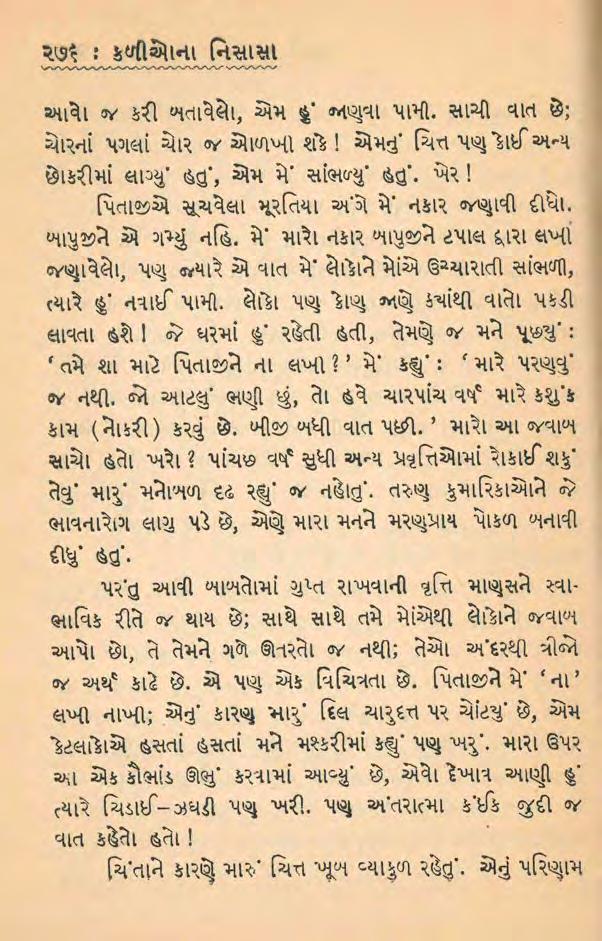 ૨૭૬ : કળીઓના નિસાસા
આવો જ કરી બતાવેલો, એમ હું જાણવા પામી. સાચી વાત છે;
ચોરનાં પગલાં ચોર જ ઓળખી શકે! એમનું ચિત્ત પણ કોઈ અન્ય
છોકરીમાં લાગ્યું હતું, એમ મેં સાંભળ્યું હતું. ખેર!
પિતાજીએ સૂચવેલા મૂરતિયા અંગે મેં નકાર જણાવી દીધો.
બાપુજીને એ ગમ્યું નહિ. મેં મારો નકાર બાપુજીને ટપાલ દ્વારા લખી
જણાવેલો, પણ જ્યારે એ વાત મેં લોકોને મોંએ ઉચ્ચારાતી સાંભળી,
ત્યારે હું નવાઈ પામી. લોકો પણ કોણ જાણે કયાંથી વાતો પકડી
લાવતા હશે! જે ઘરમાં હું રહેતી હતી, તેમણે જ મને પૂછયું :
‘તમે શા માટે પિતાજીને ના લખી?’ મેં કહ્યું : ‘મારે પરણવું
જ નથી. જો આટલું ભણી છું, તો હવે ચારપાંચ વર્ષ મારે કશુંક
કામ (નોકરી) કરવું છે. બીજી બધી વાત પછી.’ મારો આ જવાબ
સાચો હતો ખરો? પાંચછ વર્ષ સુધી અન્ય પ્રવૃત્તિઓમાં રોકાઈ શકું
તેવું મારું મનોબળ દૃઢ રહ્યું જ નહોતું. તરુણ કુમારિકાઓને જે
ભાવનારોગ લાગુ પડે છે, એણે મારા મનને મરણપ્રાય પોકળ બનાવી
દીધું હતું.
પરંતુ આવી બાબતોમાં ગુપ્ત રાખવાની વૃત્તિ માણસને સ્વા-
ભાવિક રીતે જ થાય છે; સાથે સાથે તમે મોંએથી લોકોને જવાબ
આપો છો, તે તેમને ગળે ઊતરતો જ નથી; તેઓ અંદરથી ત્રીજો
જ અર્થ કાઢે છે. એ પણ એક વિચિત્રતા છે. પિતાજીને મેં ‘ના’
લખી નાખી; એનું કારણ મારું દિલ ચારુદત્ત પર ચોંટયું છે, એમ
કેટલાકોએ હસતાં હસતાં મને મશ્કરીમાં કહ્યું પણ ખરું. મારા ઉપર
આ એક કૌભાંડ ઊભું કરવામાં આવ્યું છે, એવો દેખાવ આણી હું
ત્યારે ચિડાઈ–ઝઘડી પણ ખરી. પણ અંતરાત્મા કંઈક જુદી જ
વાત કહેતો હતો!
ચિંતાને કારણે મારું ચિત્ત ખૂબ વ્યાકુળ રહેતું. એનું પરિણામ